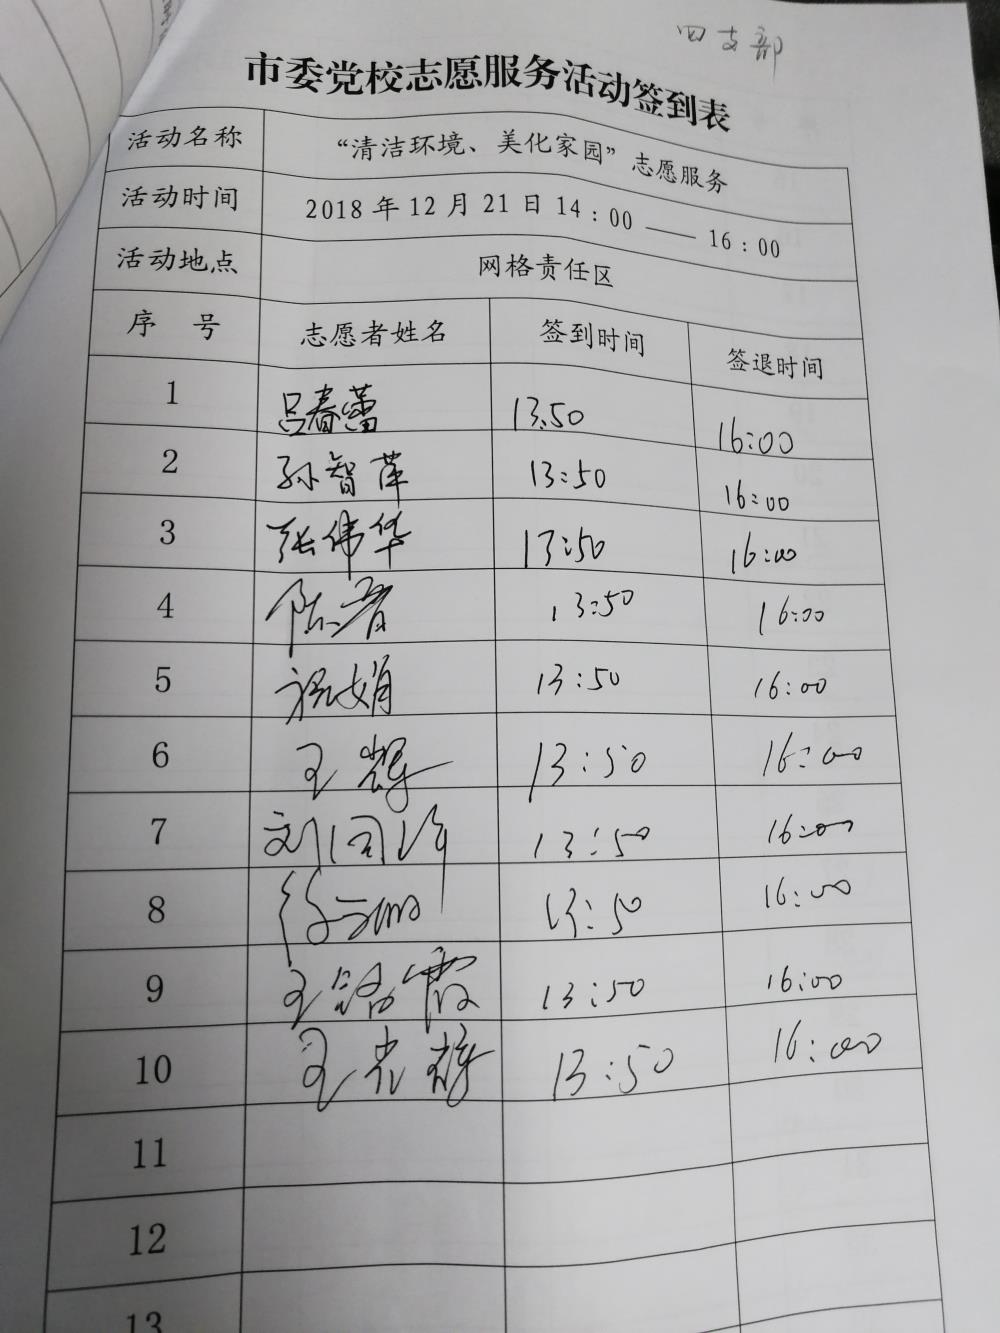 四支部
市委党校志愿服务活动签到表
活动名称 “清洁环境、美化家园”志愿服务
活动时间 2018年12月21日14:00——16:00
活动地点 网格责任区
序 号 志愿者姓名 签到时间 签退时间
1 吕春蕾 13:50 16:00
2 孙智萍 13:50 16:00
3 张伟华 13:50 16:00
4 13:50 16:00
5 祝娟 13:50 16:00
6 王辉 13:50 16:00
7 刘 13:50 16:00
8 13:50 16:00
9 王 霞 13:50 16:00
10 王 13:50 16:00
11
12
13